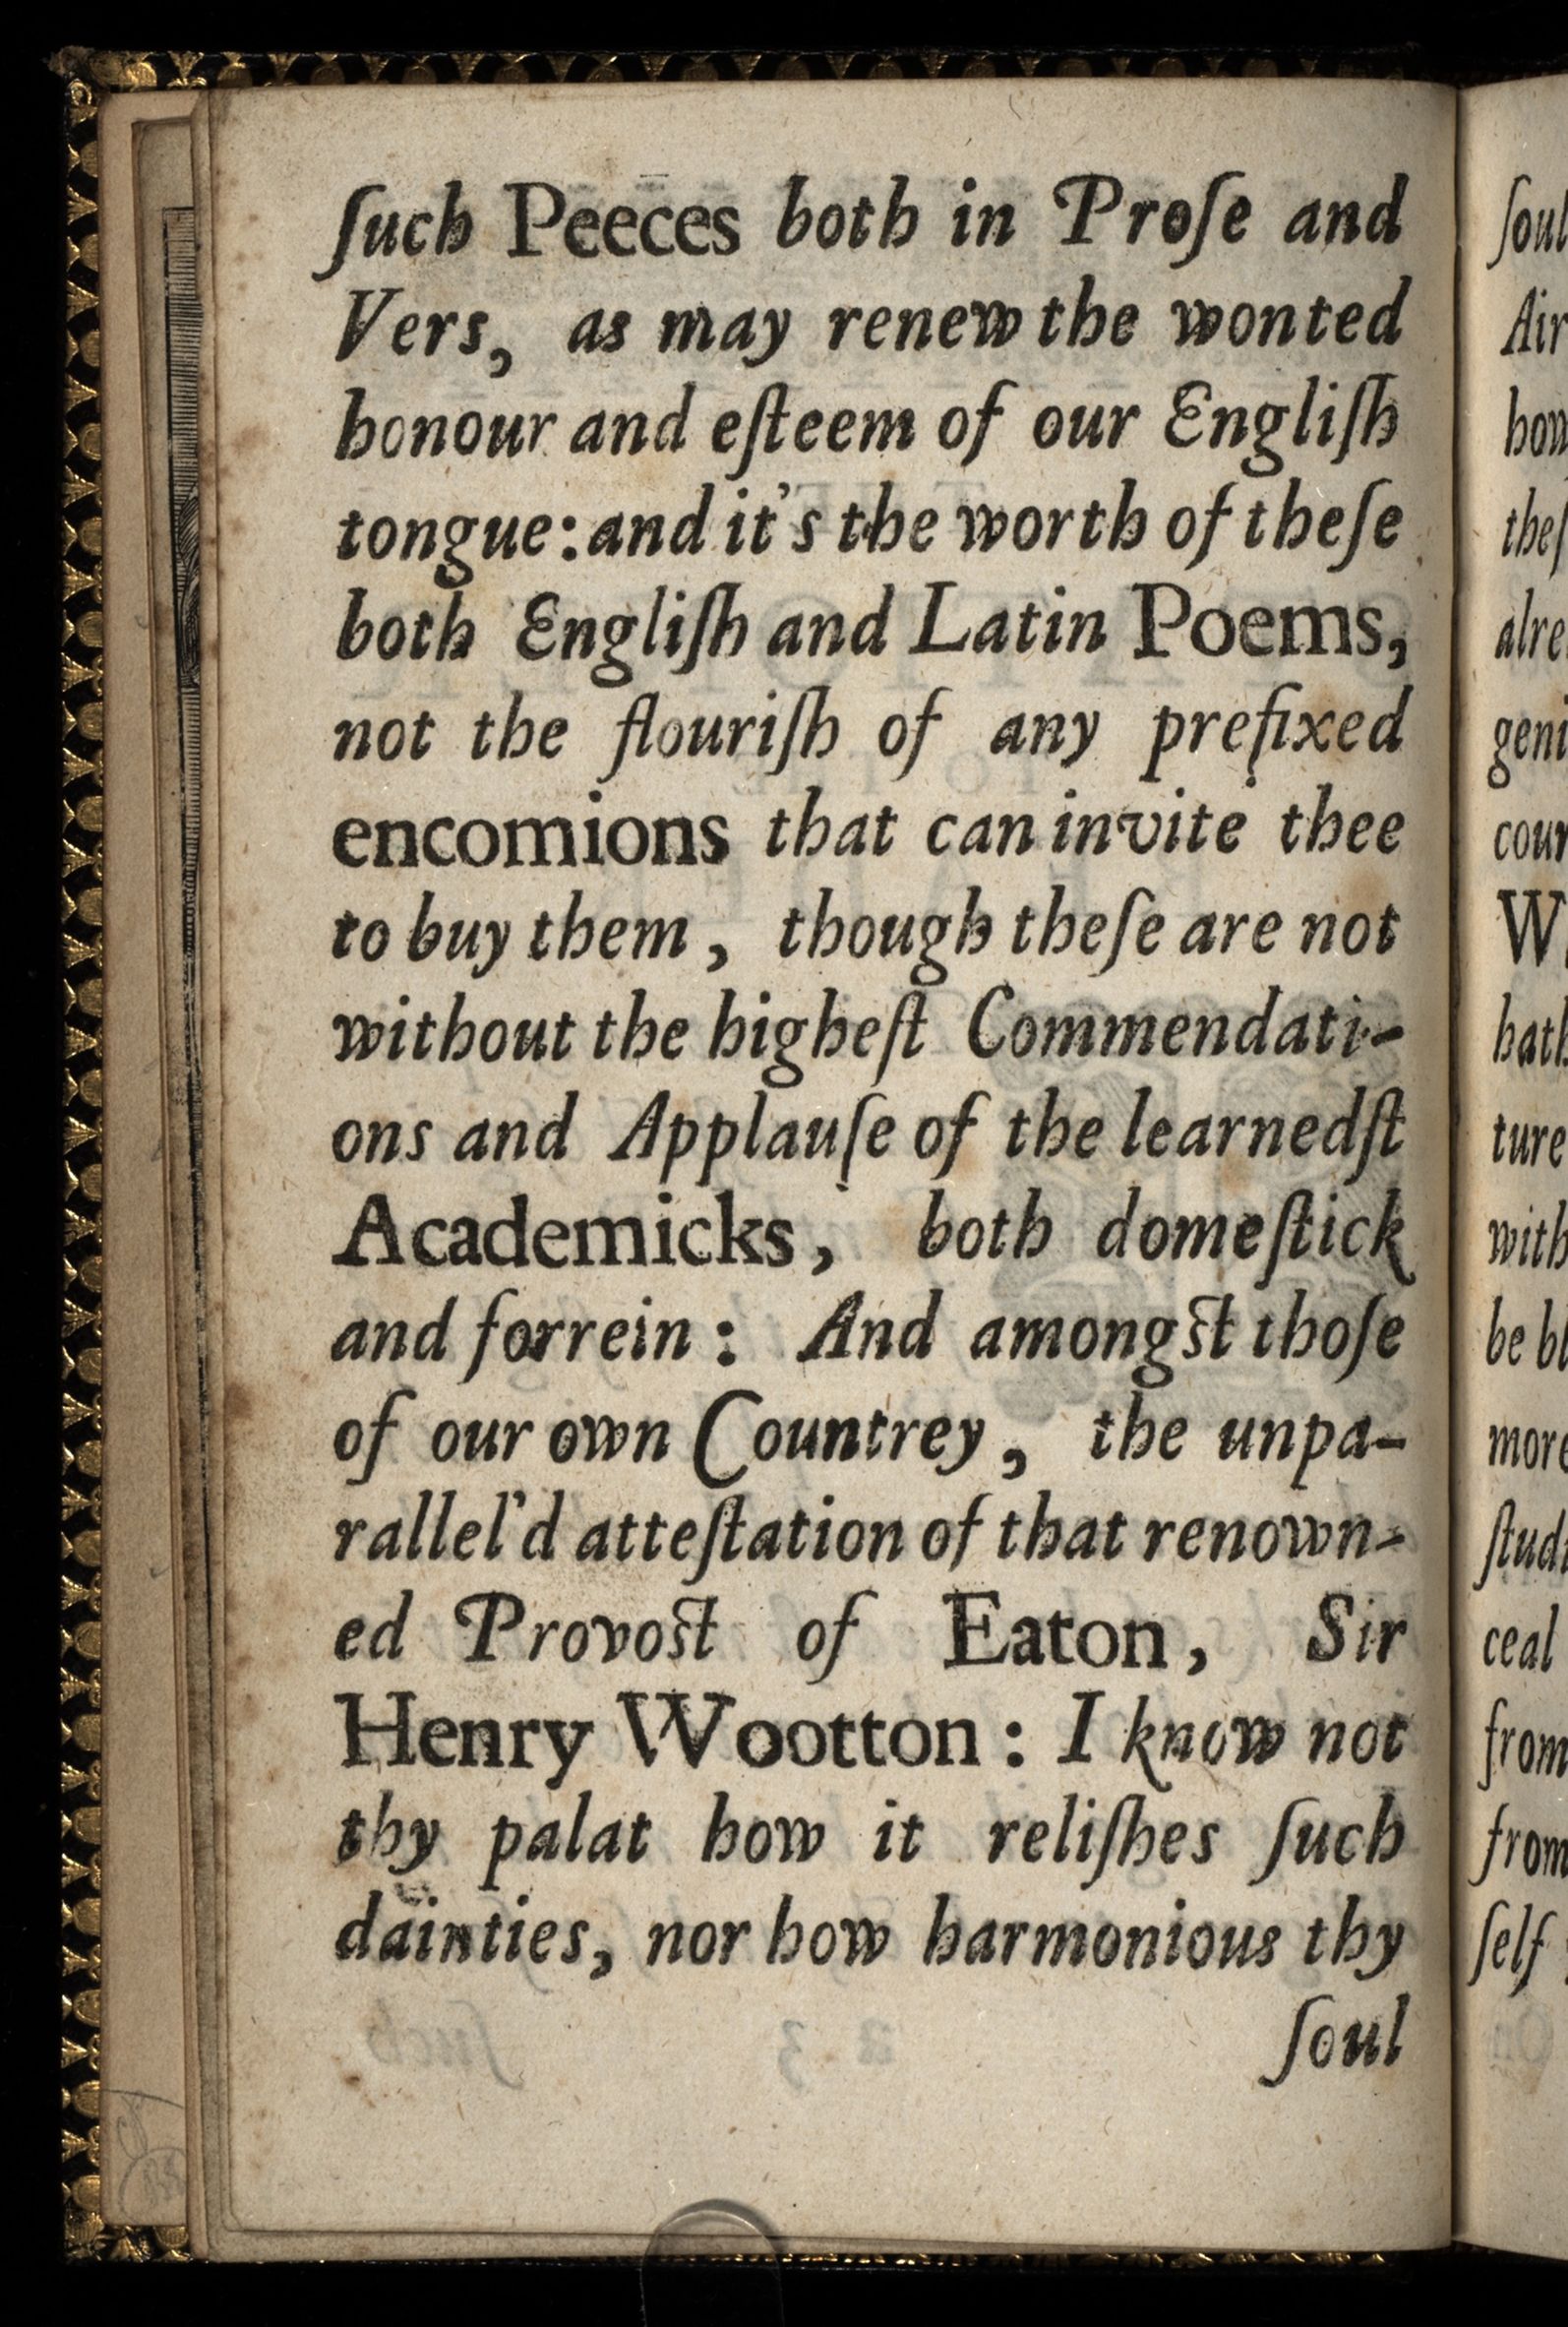 ſuch Peeces both in Proſe and
Vers, as may renew the wonted
honour and eſteem of our Engliſh
tongue: and it's the worth of theſe
both Engliſh and Latin Poems,
not the flouriſh of any prefixed
encomions that can invite thee
to buy them, though theſe are not
without the higheſt Commendati-
ons and Applauſe of the learnedſt
Academicks, both domeſtick
and forrein: And amongſt thoſe
of our own Countrey, the unpa-
rallel'd atteſtation of that renown-
ed Provoſt of Eaton, Sir
Henry Wootton: I know not
thy palat how it reliſhes ſuch
dainties, nor how harmonious thy
ſoul
ſoul
Air
how
theſ
alre
geni
cour
W
hath
ture
with
be bl
more
ſtudi
ceal
from
from
ſelf